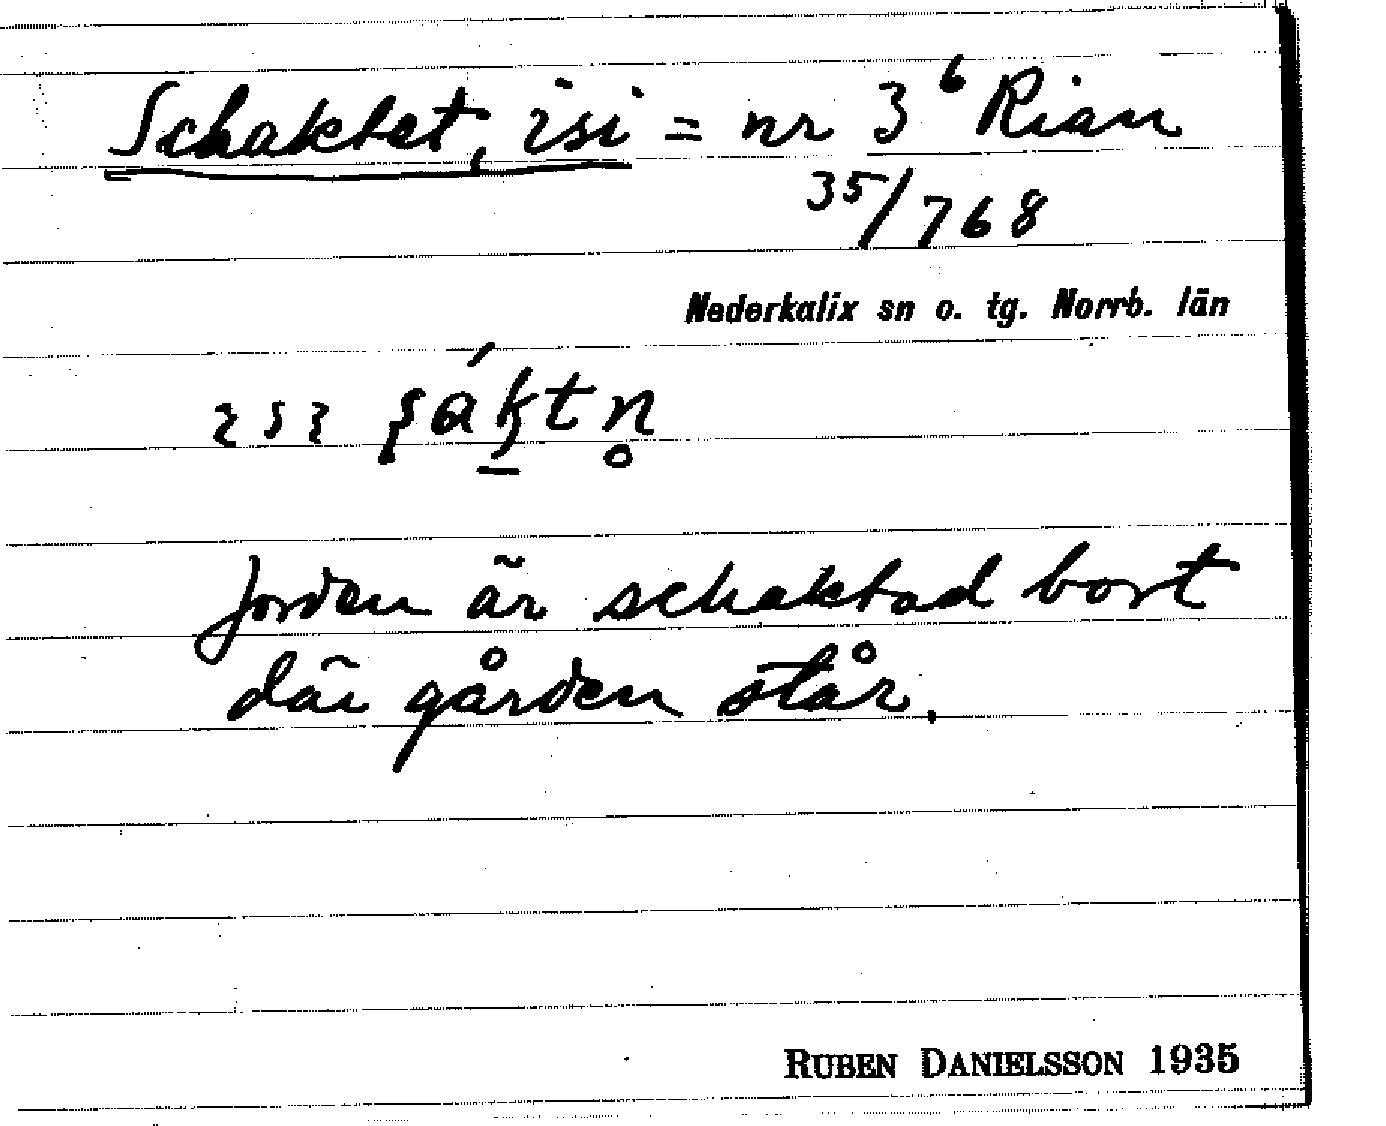 Schaktet, isi = nr 3⁶ Rian
35/768
Nederkalix sn o. tg. Norrb. län
Jorden är schaktad bort
där gården står.
RUBEN DANIELSSON 1935